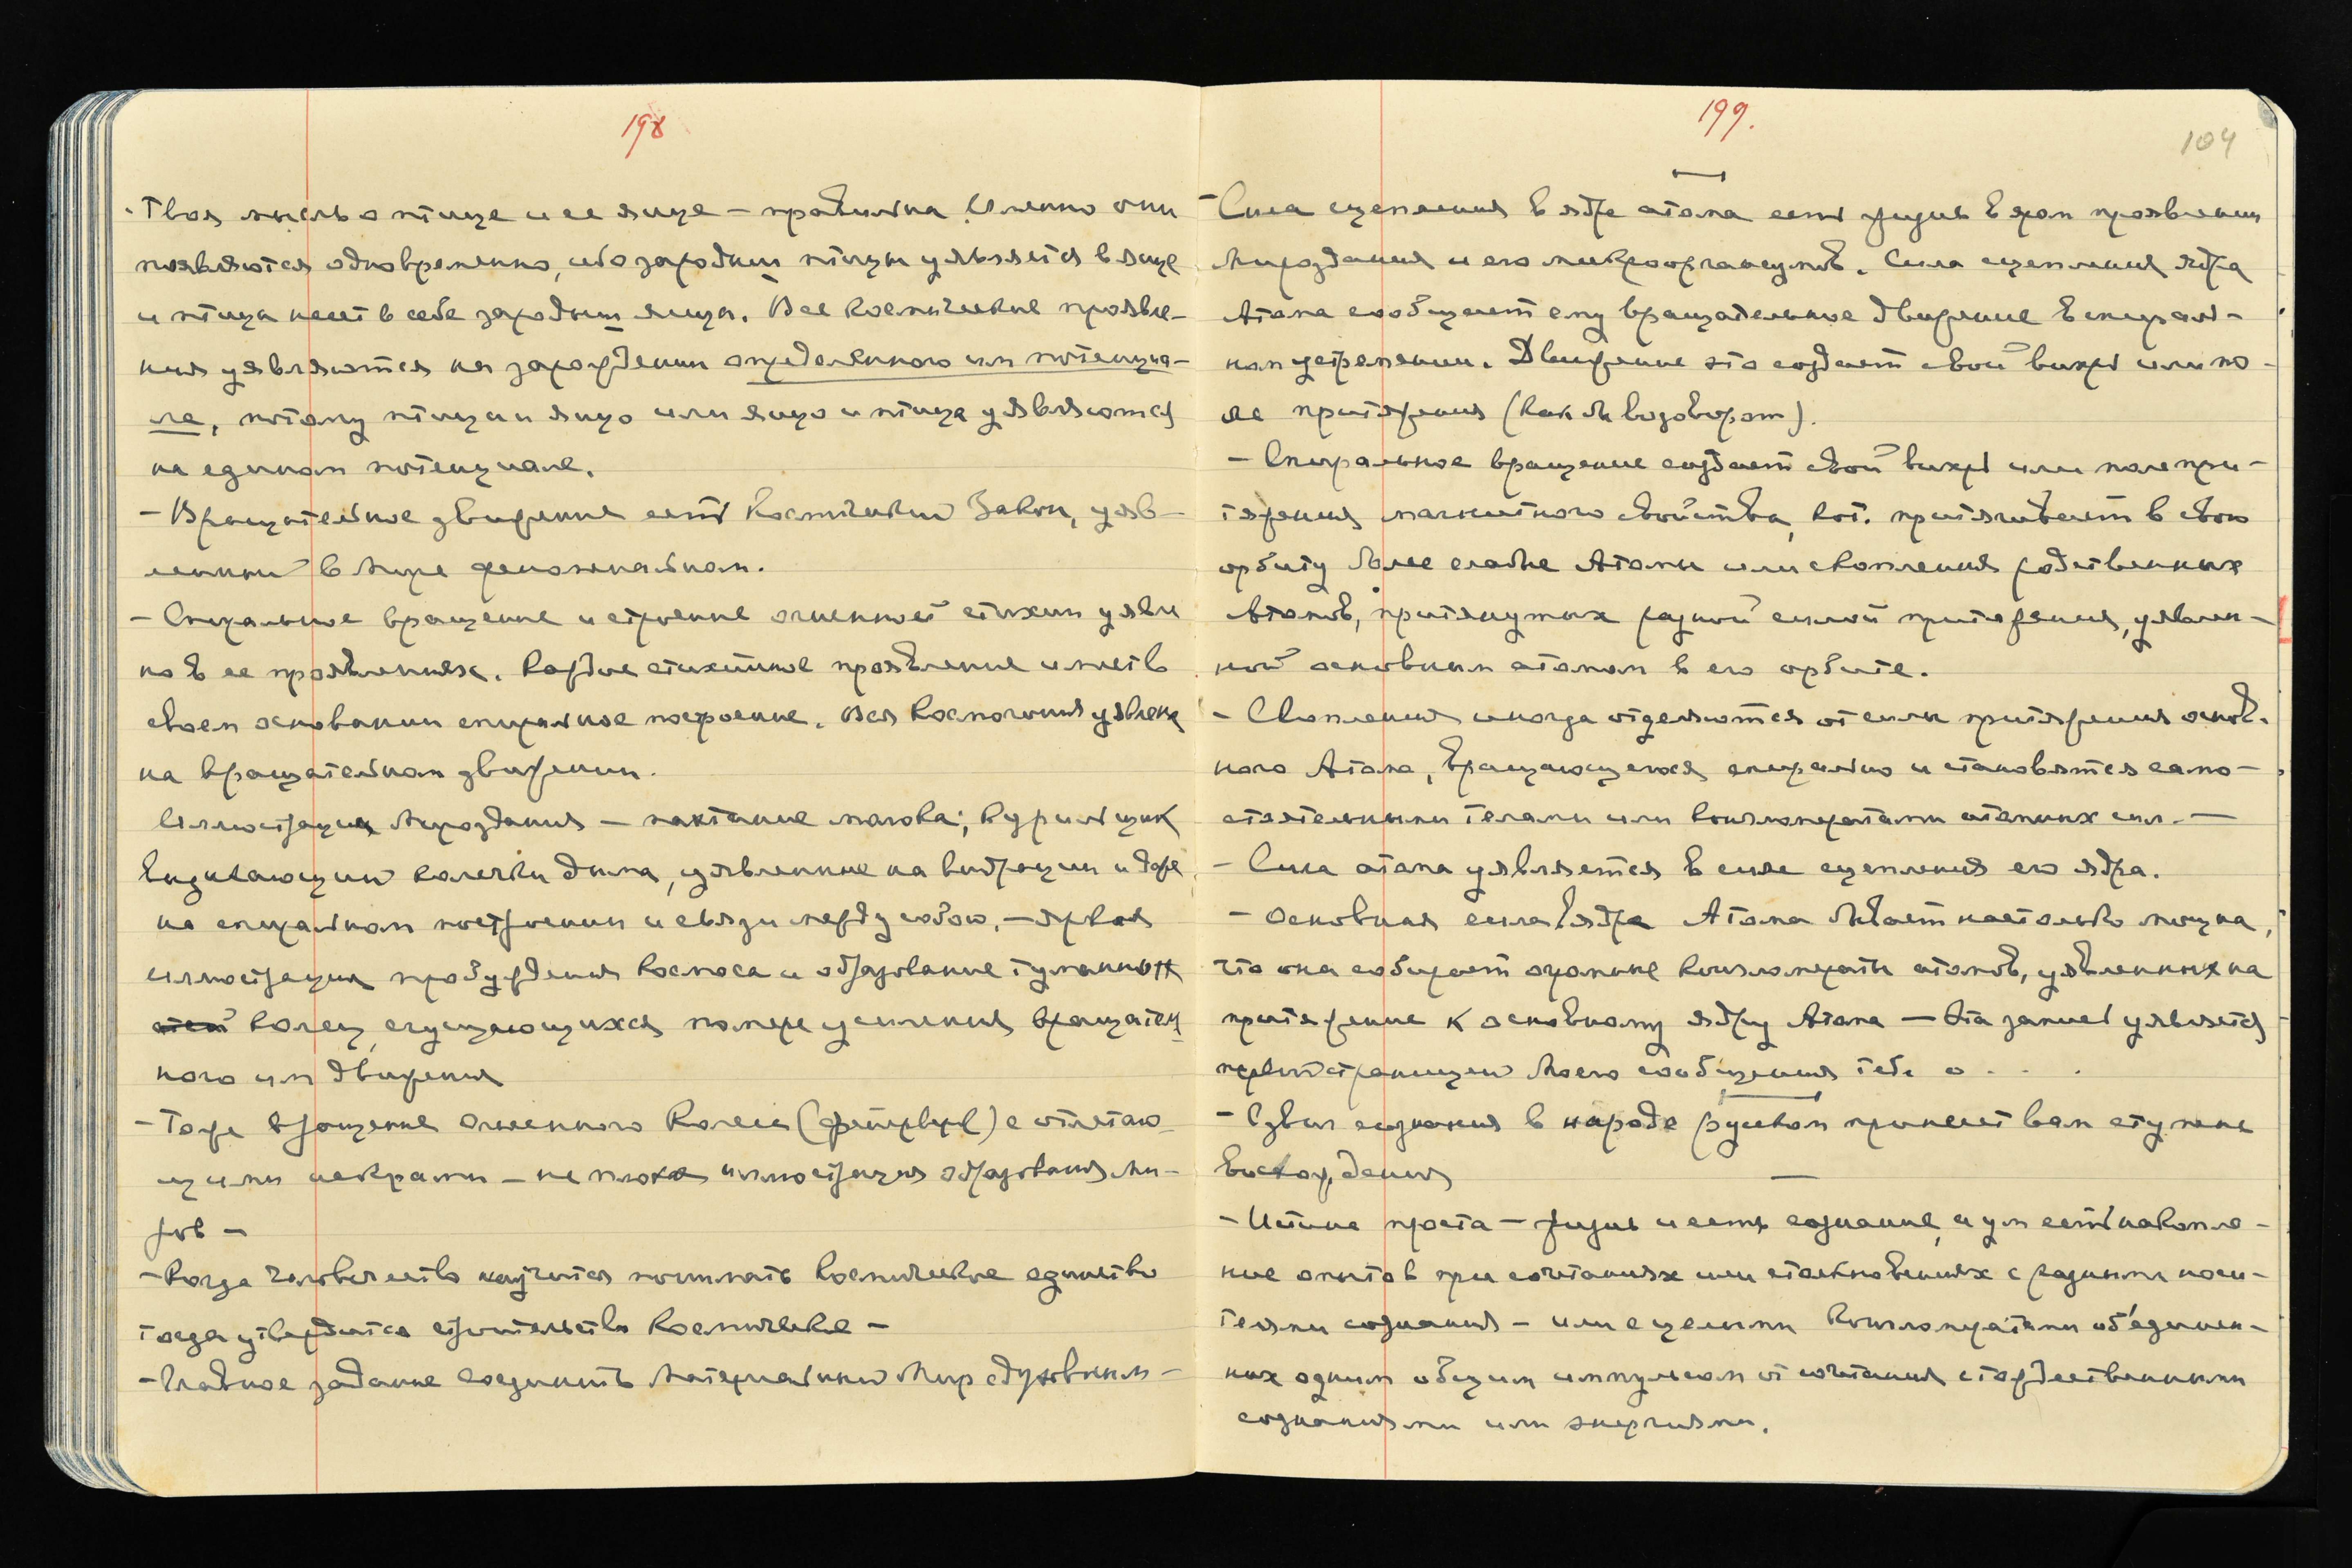 198
- Твоя мысль о птице и ее яйце – правильна. Именно они
появляются одновременно, ибо зародыш птицы уявляется в яйце
и птица несет в себе зародыш яйца. Все космические проявле-
ния уявляются на зарождении определенного им потенциа-
ла, потому птица и яйцо или яйцо и птица уявляются
на едином потенциале.
- Вращательное движение есть Космический Закон, уяв-
ленный в мире феноменальном.
- Спиральное вращение и строение огненной стихии уявле
но в ее проявлениях. Каждое стихийное проявление имеет в
своем основании спиральное построение. Вся Космогония уявлена
на вращательном движении.
Иллюстрация Мироздания – пахтание молока; курильщик
выпускающий колечки дыма, уявленные на вибрации и даже
на спиральном построении и связи между собою, – яркая
иллюстрация пробуждения Космоса и образование туманных
колец, сгущающихся по мере усиления вращатель
ного им движения
- Тоже вращение Огненного Колеса (фейерверк) с отлетаю
щими искрами – не плохая иллюстрация образования Ми-
ров –
- Когда человечество научится понимать Космическое единство
тогда утвердится строительство Космическое –
- Главное задание соединить Материальный Мир с духовным –
199.
104
- Сила сцепления в ядре атома есть жизнь в яром проявлении
Мироздания и его микроорганизмов. Сила сцепления ядра
Атома сообщает ему вращательное движение в спираль-
ном устремлении. Движение это создает свой вихрь или по-
ле притяжения (как бы водоворот).
- Спиральное вращение создает свой вихрь или поле при-
тяжения магнитного свойства, кот. притягивает в свою
орбиту более слабые Атомы или скопления родственных
Атомов, притянутых разной силой притяжения, уявлен-
ной основным атомом в его орбите.
- Скопления иногда отделяются от силы притяжения основ.
ного Атома, вращающегося спирально и становятся само-
стоятельными телами или конгломератами атомных сил. –
- Сила атома уявляется в силе сцепления его ядра.
- Основная сила ядра Атома бывает настолько мощна,
что она собирает огромные конгломераты атомов, уявленных на
притяжение к основному ядру Атома – Эта запись уявляется
первой страницей Моего сообщения тебе о . . .
- Сдвиг сознания в народе русском принесет вам ступень
восхождения
- Истина проста – жизнь и есть сознание, и ум есть накопле-
ние опытов при сочетаниях или столкновениях с разными носи-
телями сознания – или с целыми конгломератами объединен-
ных одним общим импульсом от сочетания с тождественными
сознаниями или энергиями.